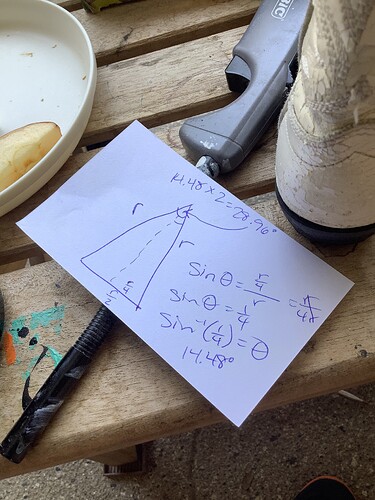 BIC
14.48 x 2 = 28.96°
r
r
r/2
r/4
Sin θ = r/4 / r = r/4r
Sin θ = 1/4
Sin⁻¹(1/4) = θ
14.48°